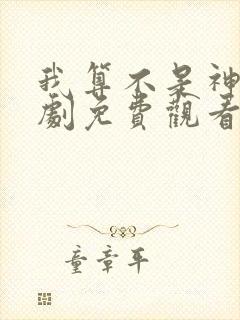 我算不呆神
劇免費觀看
童章平